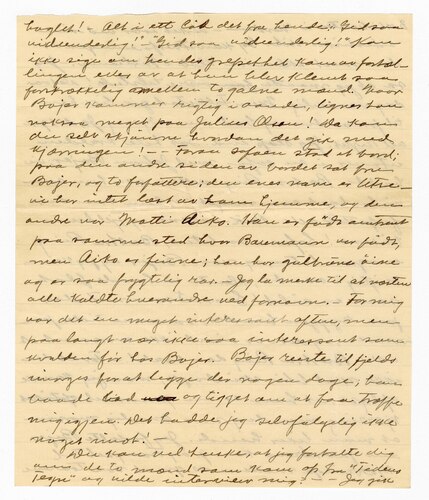 baglet! - Alt i ett lød det fra hende: "Gid saa
vidunderlig!" "Gid saa vidunderlig!" Kan
ikke sige om hendes grepethet kom av fortæl-
lingen eller av at hun blev klemt saa
forskrækkelig mellem to galne mænd. Naar
Bojer kommer rigtig i aande, ligner han
nokssaa meget paa Julius Olson! Da kan
du selv skjønne hvordan det gik med
kjærringen! - - Foran sofaen stod et bord;
paa den andre siden av bordet sat fru
Bojer, og to forfattere; den enes navn er
vi har intet læst av ham hjemme, og den
andre var Matti Aiko. Han er født omtrent
paa samme sted hvor Baumann var født,
men Aiko er finne; han har gulbrune øine
og er saa frygtelig rar. Jeg la merke til at næsten
alle kaldte hverandre ved fornavn. - For mig
var det en meget interessant aften, men
paa langt nær ikke saa interessant som
kvelden før hos Bojer. Bojer reiste til fjelds
imorges for at ligge der nogen dage; han
baade bad og ligget om at faa træffe
mig igjen. Det hadde jeg selvfølgelig ikke
noget imot! -
Du kan vel huske, at jeg fortalte dig
om de to mænd som kom op fra "Tidens
Tegn" og vilde interviewe mig? - - Jeg gik